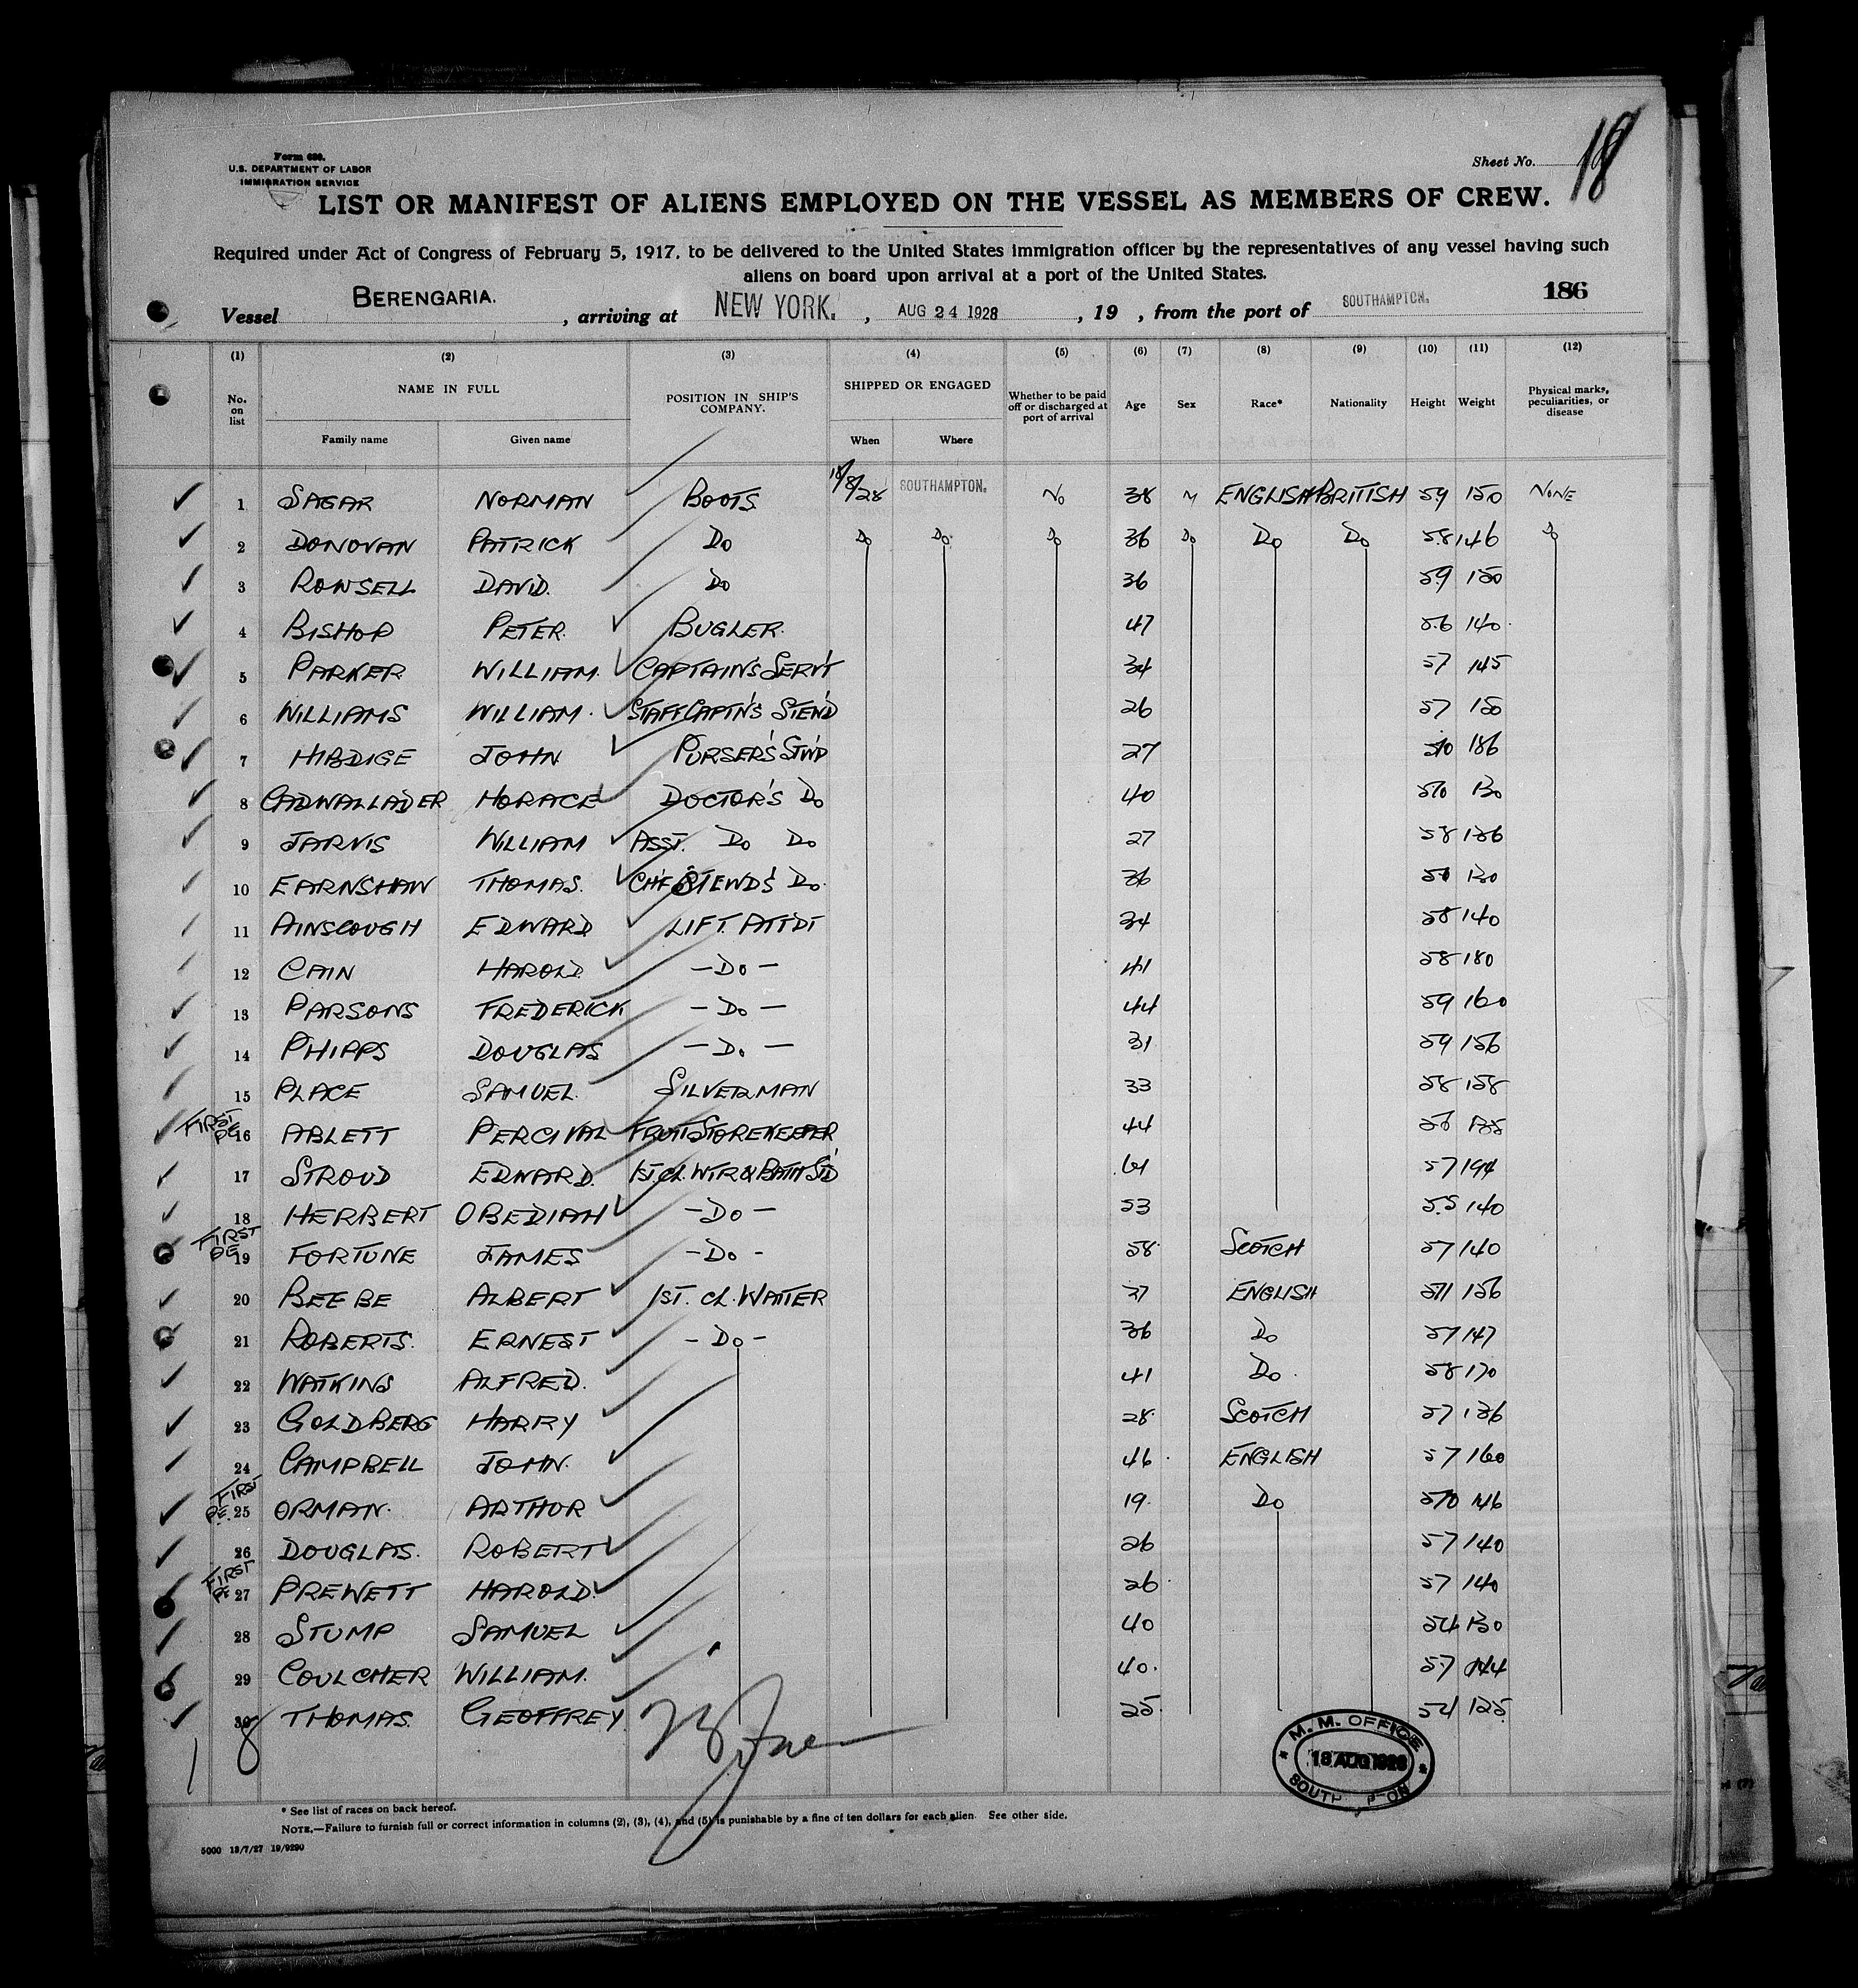 Form 680.
U.S. DEPARTMENT OF LABOR
IMMIGRATION SERVICE
Sheet No. 18
LIST OR MANIFEST OF ALIENS EMPLOYED ON THE VESSEL AS MEMBERS OF CREW.
Required under Act of Congress of February 5, 1917, to be delivered to the United States immigration officer by the representatives of any vessel having such
aliens on board upon arrival at a port of the United States.
186
Vessel BERENGARIA. , arriving at NEW YORK. , AUG 24 1928 , 19 , from the port of SOUTHAMPTON.
(1) (2) (3) (4) (5) (6) (7) (8) (9) (10) (11) (12)
No. on list NAME IN FULL POSITION IN SHIP'S COMPANY. SHIPPED OR ENGAGED Whether to be paid off or discharged at port of arrival Age Sex Race* Nationality Height Weight Physical marks, peculiarities, or disease
Family name Given name When Where
1 SAGAR NORMAN BOOTS 18/8/28 SOUTHAMPTON. No 38 M ENGLISH BRITISH 59 150 NONE
2 DONOVAN PATRICK Do Do Do Do 36 Do Do Do 5.8 146 Do
3 ROWSELL DAVID. Do 36 5.9 150
4 BISHOP PETER. BUGLER. 47 5.6 140
5 PARKER WILLIAM. CAPTAIN'S SERV'T 34 57 145
6 WILLIAMS WILLIAM. STAFF CAPTN'S STEW'D 26 57 150
7 HIBDIGE JOHN PURSER'S STW'D 27 510 186
8 CADWALLADER HORACE DOCTOR'S Do 40 510 130
9 JARVIS WILLIAM ASST. Do Do 27 58 136
10 EARNSHAW THOMAS. CHF STEWD'S Do. 36 130
11 AINSCOUGH EDWARD LIFT. ATTDT 34 58 140
12 CAIN HAROLD. -Do- 41 58 180
13 PARSONS FREDERICK -Do- 44 59 160
14 PHIPPS DOUGLAS -Do- 31 59 156
15 PLACE SAMUEL. SILVERMAN 33 58 158
FIRST PE 16 ABLETT PERCIVAL FRUIT STOREKEEPER 44 56
17 STROUD EDWARD. 1ST. CL. WTR & BATH S'D 61 57 194
18 HERBERT OBEDIAH -Do- 53 5.5 140
FIRST PE 19 FORTUNE JAMES -Do- 58 SCOTCH 57 140
20 BEEBE ALBERT 1ST. CL. WAITER 37 ENGLISH 511 156
21 ROBERTS. ERNEST -Do- 36 Do 57 147
22 WATKINS ALFRED. 41 Do. 58 170
23 GOLDBERG HARRY 28 SCOTCH 57 136
24 CAMPBELL JOHN. 46 ENGLISH 57 160
FIRST PE. 25 ORMAN. ARTHUR 19. Do 510 146
26 DOUGLAS. ROBERT 26 57 140
FIRST PE 27 PREWETT HAROLD. 26 57 140
28 STUMP SAMUEL 40 54 130
29 COULCHER WILLIAM. 40. 57 144
30 THOMAS. GEOFFREY. 25 54 125
M. M. OFFICE
18 AUG 1928
* See list of races on back hereof.
NOTE.—Failure to furnish full or correct information in columns (2), (3), (4), and (5) is punishable by a fine of ten dollars for each alien. See other side.
5000 13/7/27 19/9290